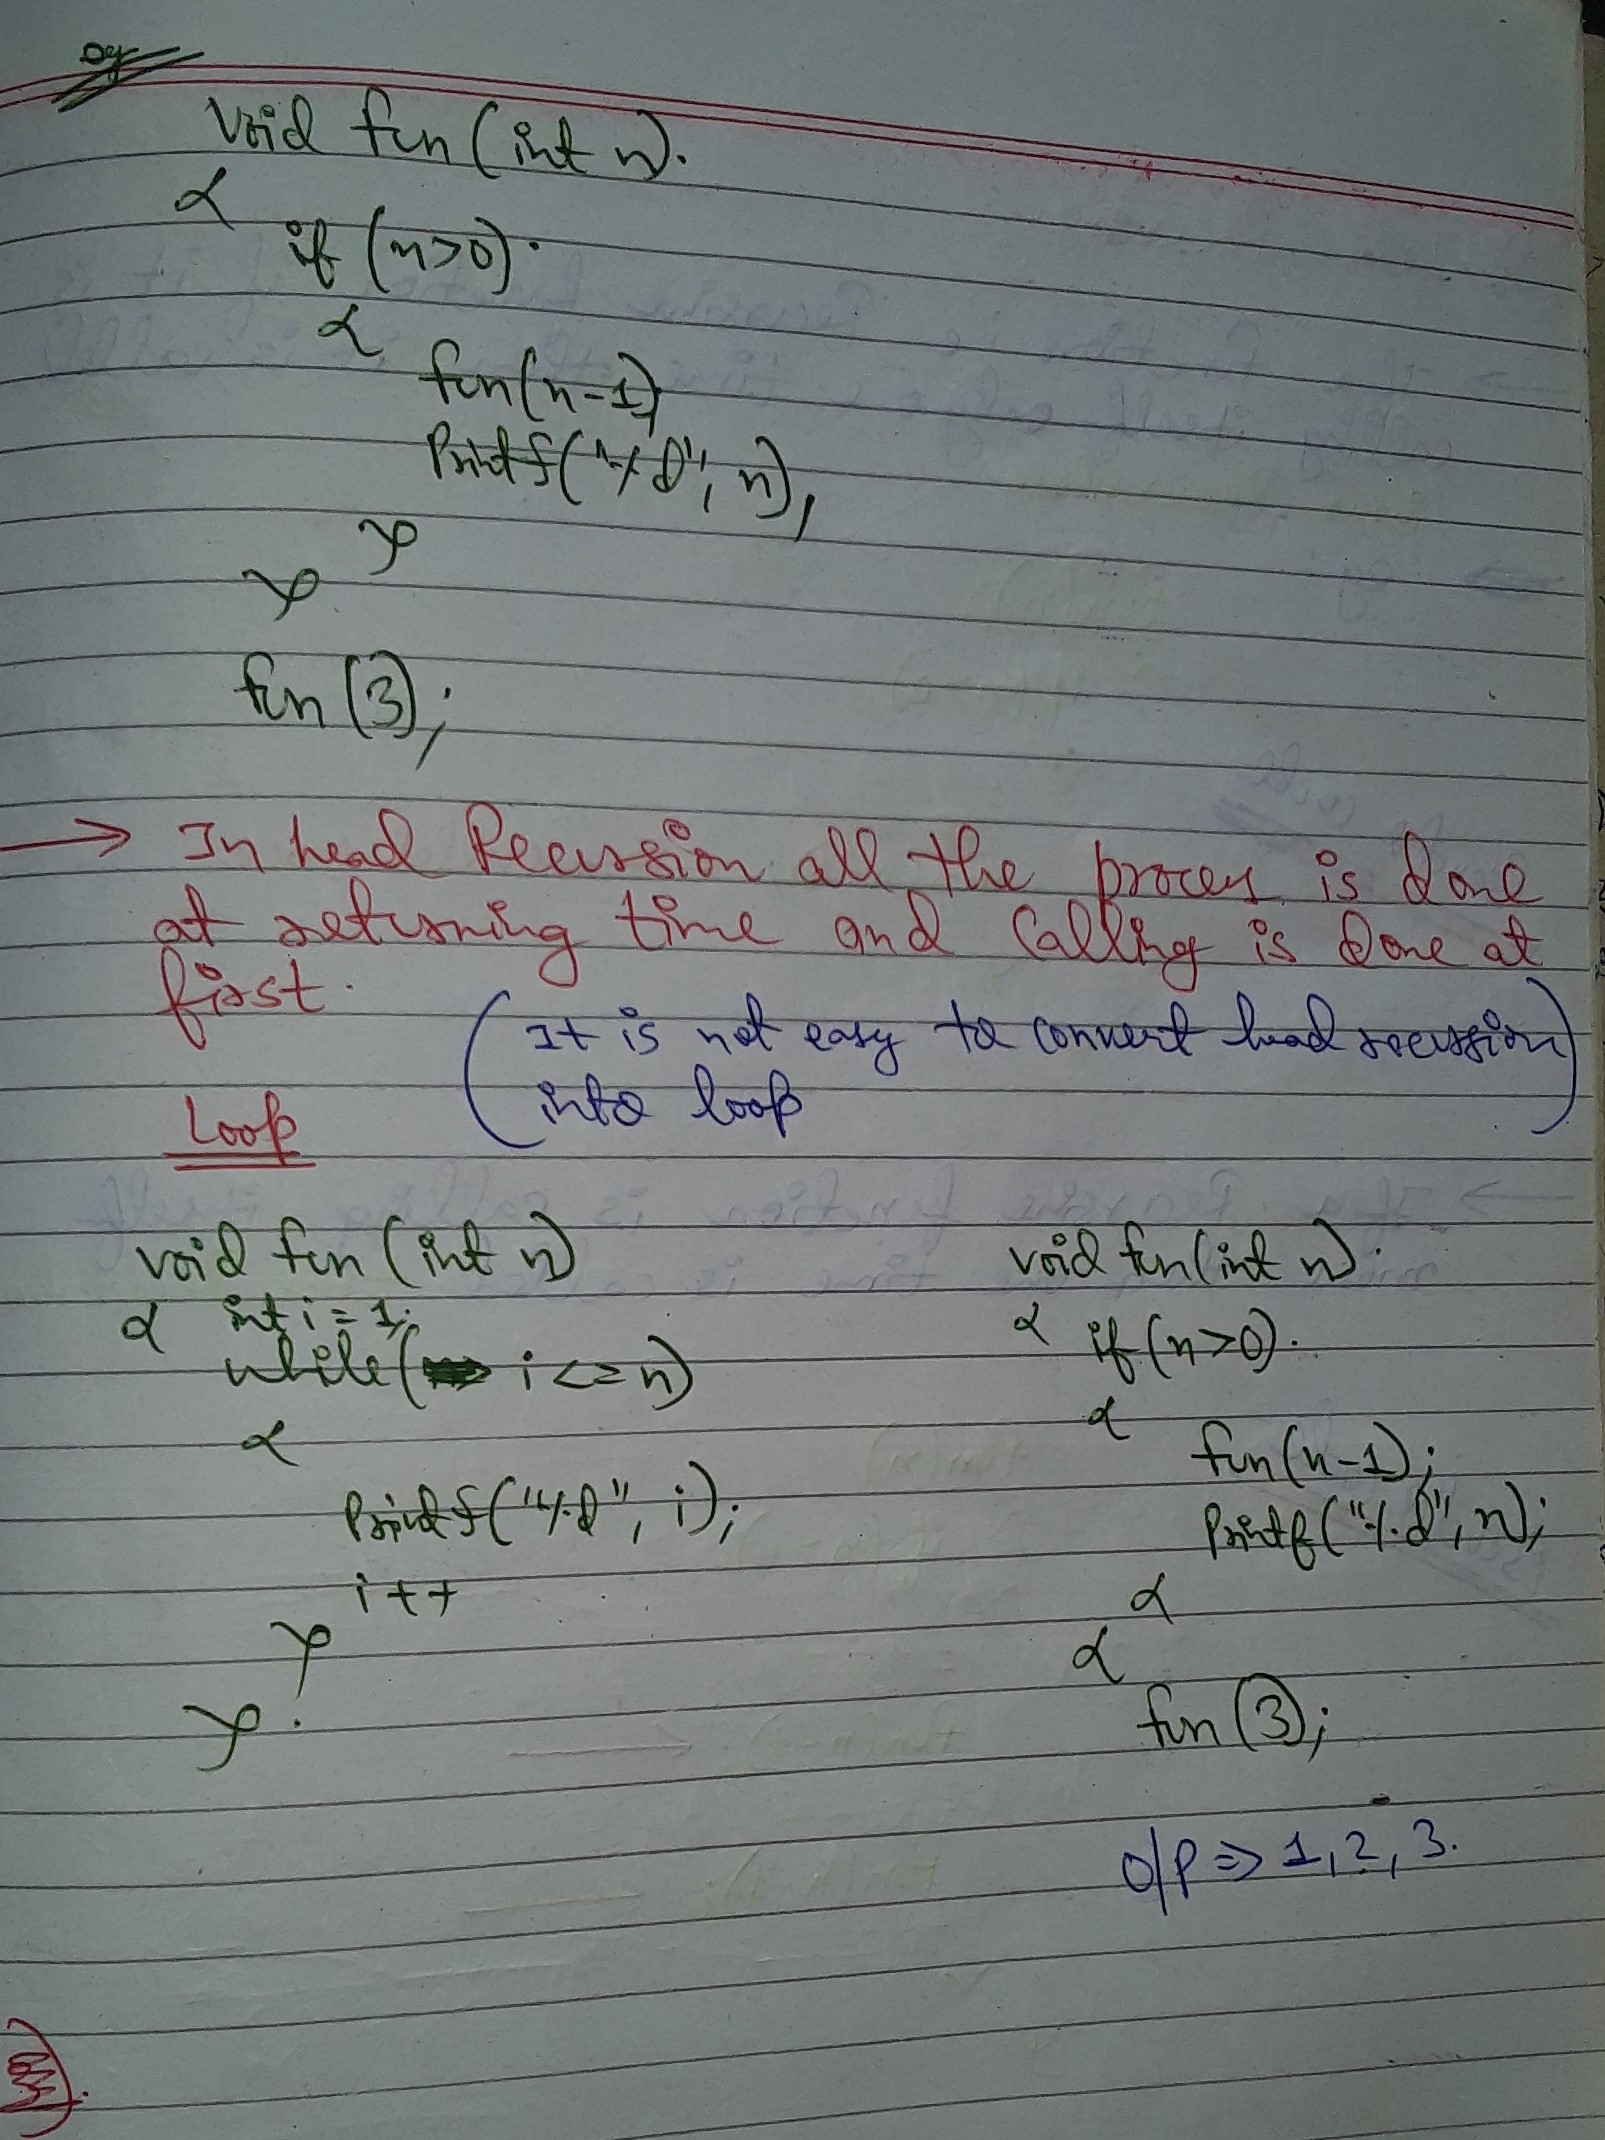 eg
void fun(int n).
{
if (n>0).
{
fun(n-1)
Printf("%d", n),
}
}
fun (3);
→ In head Recursion all the proces is done
at returning time and calling is done at
first.
(It is not easy to convert head recussion
into loop)
Loop
void fun (int n)
{ int i = 1;
while( i <= n)
{
Printf("%d", i);
i++
}
}.
void fun(int n).
{ if (n>0).
{
fun(n-1);
Printf("%d", n);
{
{
fun (3);
O/P => 1, 2, 3.